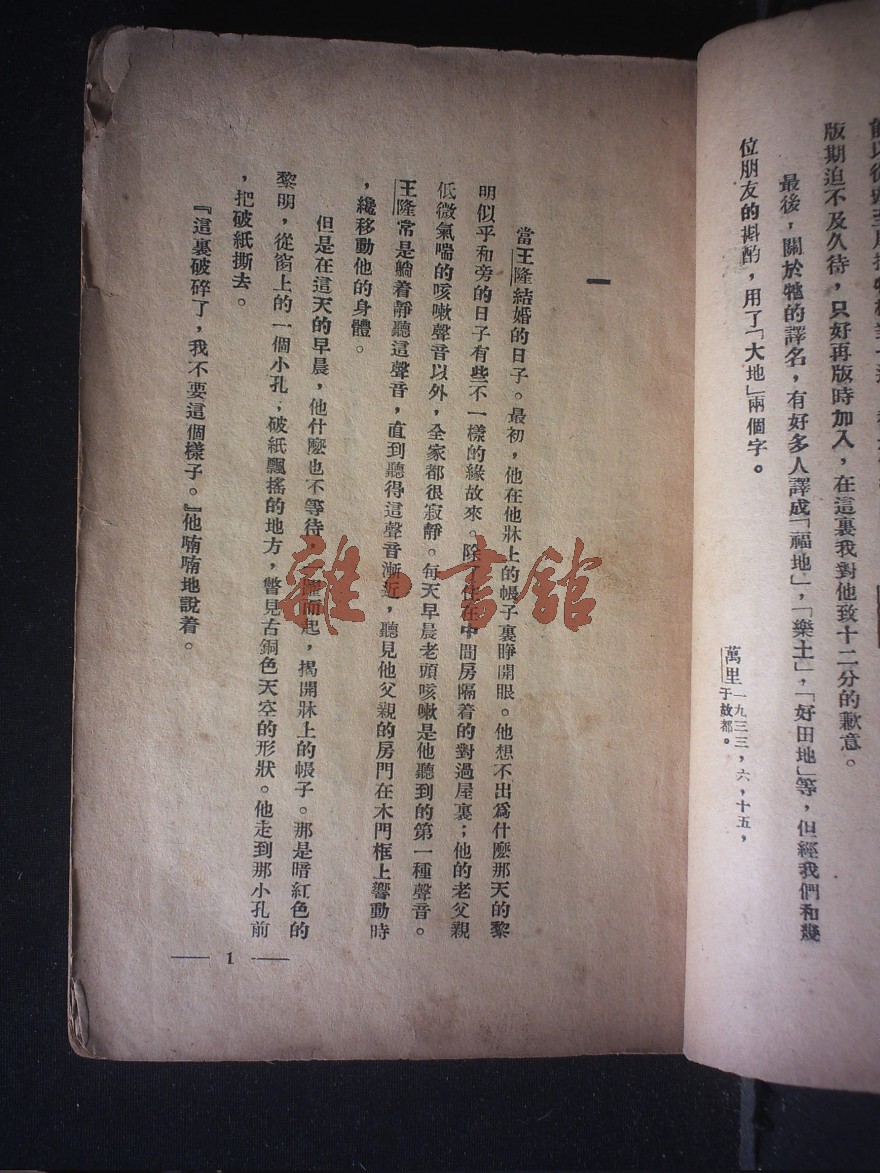 版期迫不及久待，只好再版時加入，在這裏我對他致十二分的歉意。
最後，關於牠的譯名，有好多人譯成「福地」，「樂土」，「好田地」等，但經我們和幾
位朋友的斟酌，用了「大地」兩個字。
萬里
一九三三，六，十五，
于故都。
一
當王隆結婚的日子。最初，他在他牀上的帳子裏睜開眼。他想不出爲什麼那天的黎
明似乎和旁的日子有些不一樣的緣故來。除了住在中間房隔着的對過屋裏；他的老父親
低微氣喘的咳嗽聲音以外，全家都很寂靜。每天早晨老頭咳嗽是他聽到的第一種聲音。
王隆常是躺着靜聽這聲音，直到聽得這聲音漸近，聽見他父親的房門在木門框上響動時
，纔移動他的身體。
但是在這天的早晨，他什麼也不等待，而起，揭開牀上的帳子。那是暗紅色的
黎明，從窗上的一個小孔，破紙飄搖的地方，瞥見古銅色天空的形狀。他走到那小孔前
，把破紙撕去。
『這裏破碎了，我不要這個樣子。』他喃喃地說着。
1
雜·書館